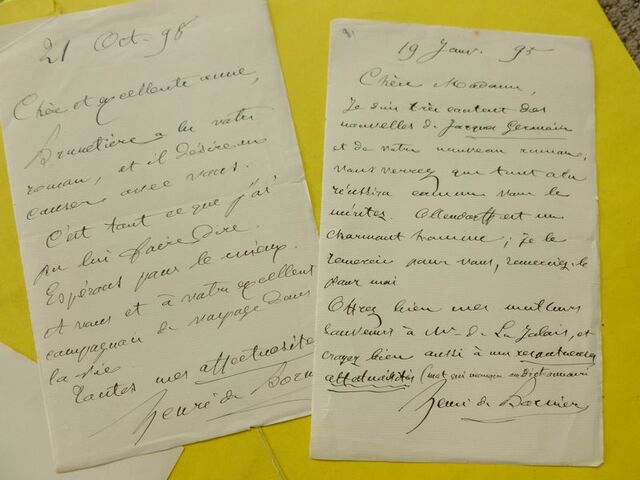 21 Oct. 98
Chère et excellente amie,
Brunetière a lu votre
roman, et il désire en
causer avec vous.
C'est tout ce que j'ai
pu lui faire dire.
Espérons pour le mieux.
A vous et à votre excellent
compagnon de voyage dans
la vie
Toutes mes affectuosités
Henri de Bornier
19 Janv. 95
Chère Madame,
Je suis très content des
nouvelles de Jacques Germain
et de votre nouveau roman;
vous verrez que tout cela
réussira comme vous le
méritez. Ollendorff est un
charmant homme; je le
remercie pour vous, remerciez le
pour moi
Offrez bien mes meilleurs
souvenirs à Mr. de La
et
croyez bien aussi à mes respectueuses
affectuosités (mot qui manque au dictionnaire
Henri de Bornier